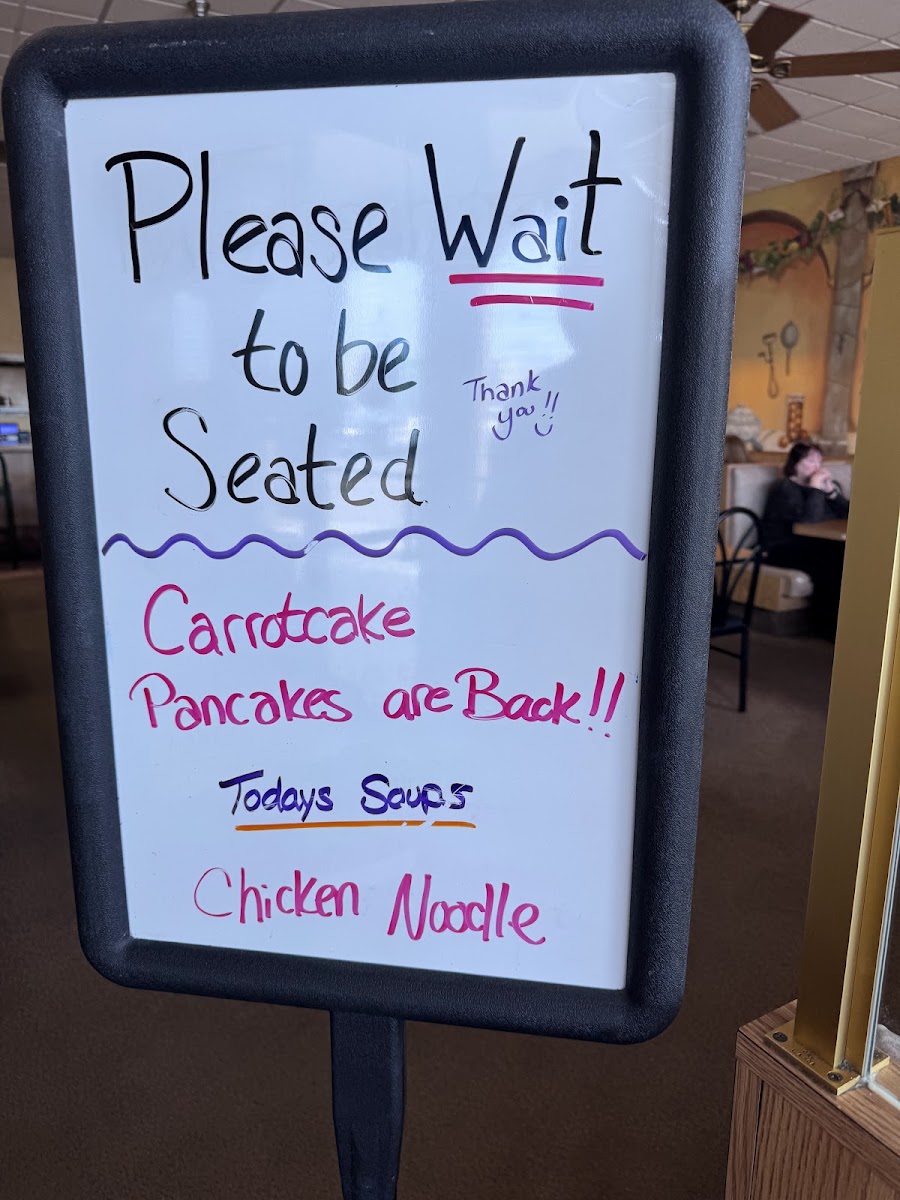 Please Wait
to be
Seated
Thank
you!!
Carrotcake
Pancakes are Back!!
Todays Soups
Chicken Noodle